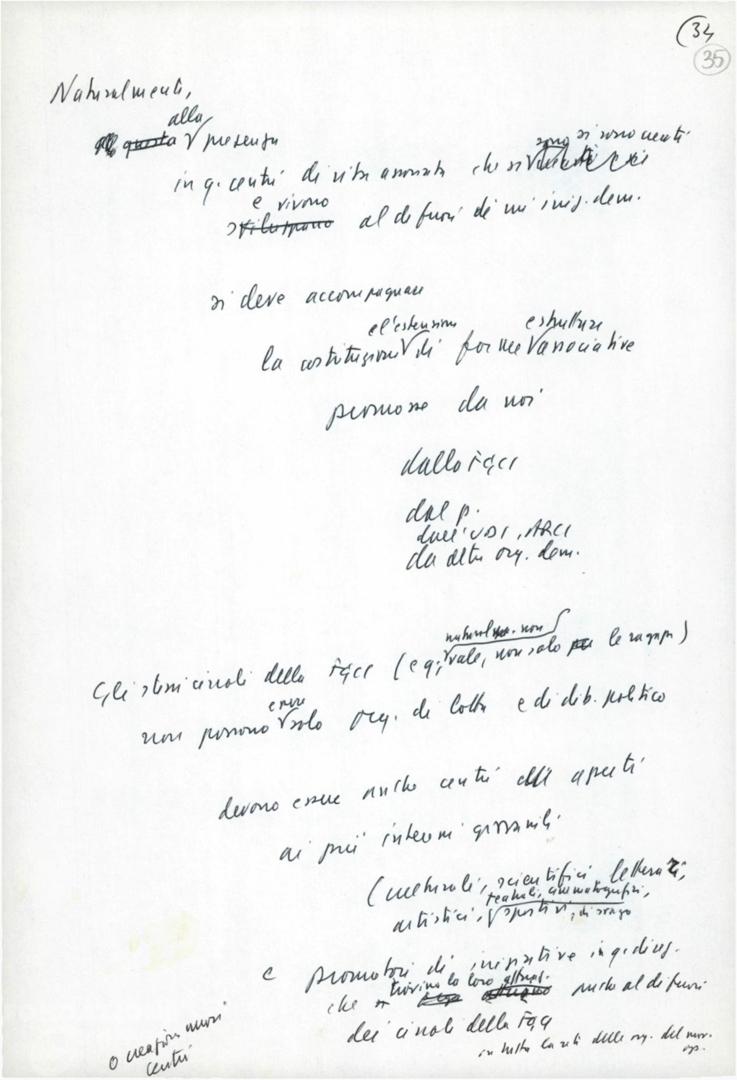 (34
35
Naturalmente,
alla
questa presenza
in q. centri di vita associata che si sono si sono creati
e vivono
sviluppano al di fuori di ini iniz. dem.
si deve accompagnare
e l'estensione e strutture
la costituzione di forme associative
promosse da noi
dalla FGCI
dal p.
dall'UDI, ARCI
da altre org. dem.
natural. non
Gli stessi circoli della FGCI (e q. vale, non solo per le ragazze)
essere
non possono solo org. di lotta e di dib. politico
devono essere anche centri aperti
ai più interessi giovanili
(culturali, scientifici, letterari,
teatrali, cinematografici,
artistici, sportivi, di svago
e promotori di iniziative in q. direz.
che trovino la loro attuaz. anche al di fuori
dei circoli della FGCI
in tutta la rete delle org. del mov. op.
o creazioni nuovi
centri